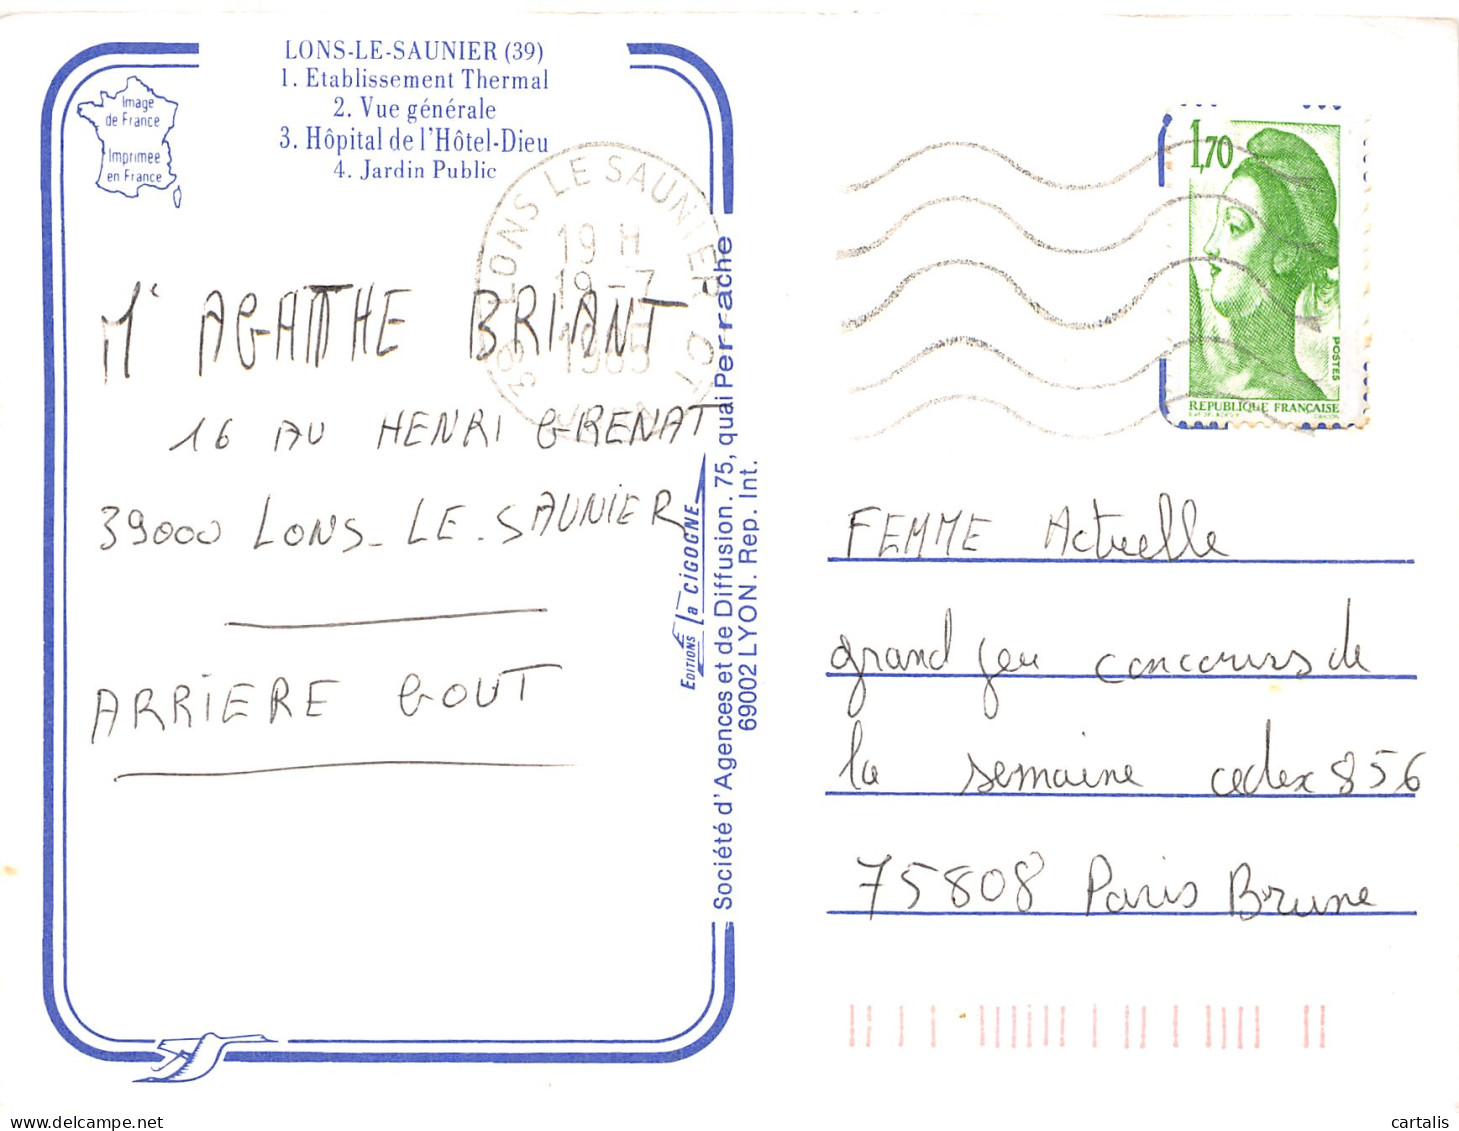 LONS-LE-SAUNIER (39)
1. Etablissement Thermal
2. Vue générale
3. Hôpital de l'Hôtel-Dieu
4. Jardin Public
Image
de France
Imprimée
en France
LONS LE SAUNIER CT
39
19 H
19 - 7
JURA
M AGATHE BRIANT
16 AV HENRI GRENAT
39000 LONS-LE-SAUNIER
ARRIERE GOUT
EDITIONS la CIGOGNE
Société d'Agences et de Diffusion. 75, quai Perrache
69002 LYON. Rep. Int.
1,70
POSTES
REPUBLIQUE FRANÇAISE
FEMME Actuelle
grand jeu concours de
la semaine cedex 856
75808 Paris Brune
cartalis